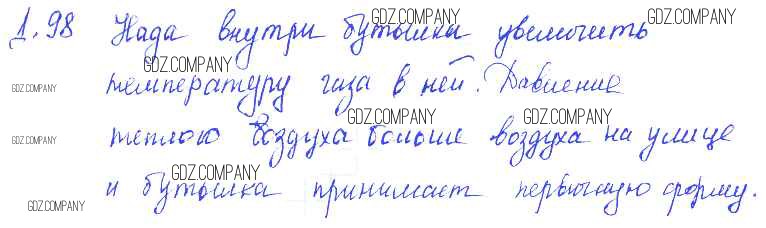 GDZ.COMPANY GDZ.COMPANY
1.98 Нада внутри бутылки увеличить
GDZ.COMPANY
GDZ.COMPANY температуру газа в ней. Давление
GDZ.COMPANY GDZ.COMPANY
GDZ.COMPANY теплого воздуха больше воздуха на улице
GDZ.COMPANY
и бутылка принимает первичную форму.
GDZ.COMPANY